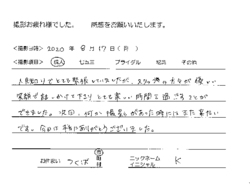 撮影お疲れ様でした。 感想をお願いいたします。
<撮影日時> 2020 年 8 月 17 日 (月)
<撮影項目> 成人 七五三 ブライダル 証長 その他
人見知りでとても緊張していましたが、スタッフの方々が優しい
笑顔で話しかけて下さり とても楽しい時間を過ごすことが
できました。次回、何かの機会があった時にはまた来たい
です。今日は本当にありがとうございました。
お住まい つくば 市
ニックネーム
イニシャル K